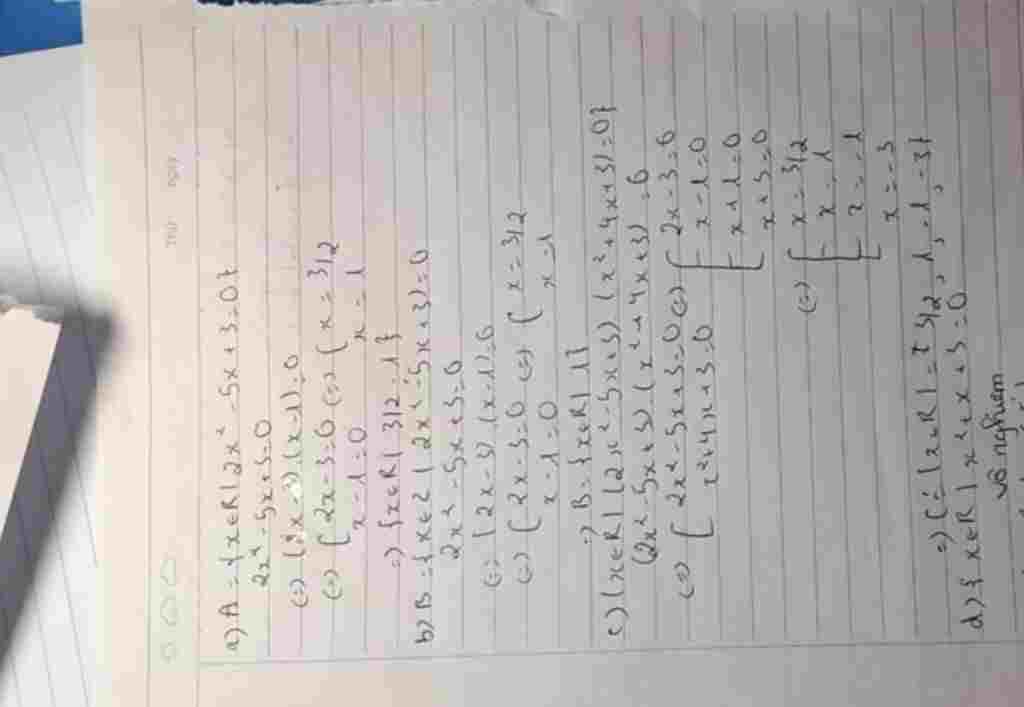 THỨ NGÀY
a) A = {x∈R | 2x² - 5x + 3 = 0}
2x² - 5x + 3 = 0
(=) (2x - 3) (x - 1) = 0
(=) [ 2x - 3 = 0 (=) { x = 3/2
x - 1 = 0 x = 1
=) {x∈R | 3/2 , 1}
b) B = {x∈Z | 2x² - 5x + 3) = 0
2x² - 5x + 3 = 0
(=) (2x - 3) (x - 1) = 0
(=) [ 2x - 3 = 0 (=) { x = 3/2
x - 1 = 0 x = 1
=) B = {x∈R | 1}
c) (x∈R | (2x² - 5x + 3) (x² + 4x + 3) = 0}
(2x² - 5x + 3) (x² + 4x + 3) = 0
(=) [ 2x² - 5x + 3 = 0 (=) [ 2x - 3 = 0
x² + 4x + 3 = 0 x - 1 = 0
[ x + 1 = 0
x + 3 = 0
(=) [ x = 3/2
x = 1
[ x = -1
x = -3
=) C = {x∈R | = { 3/2 , 1 , -1 , -3}
d) { x∈R | x² + x + 3 = 0
vô nghiệm